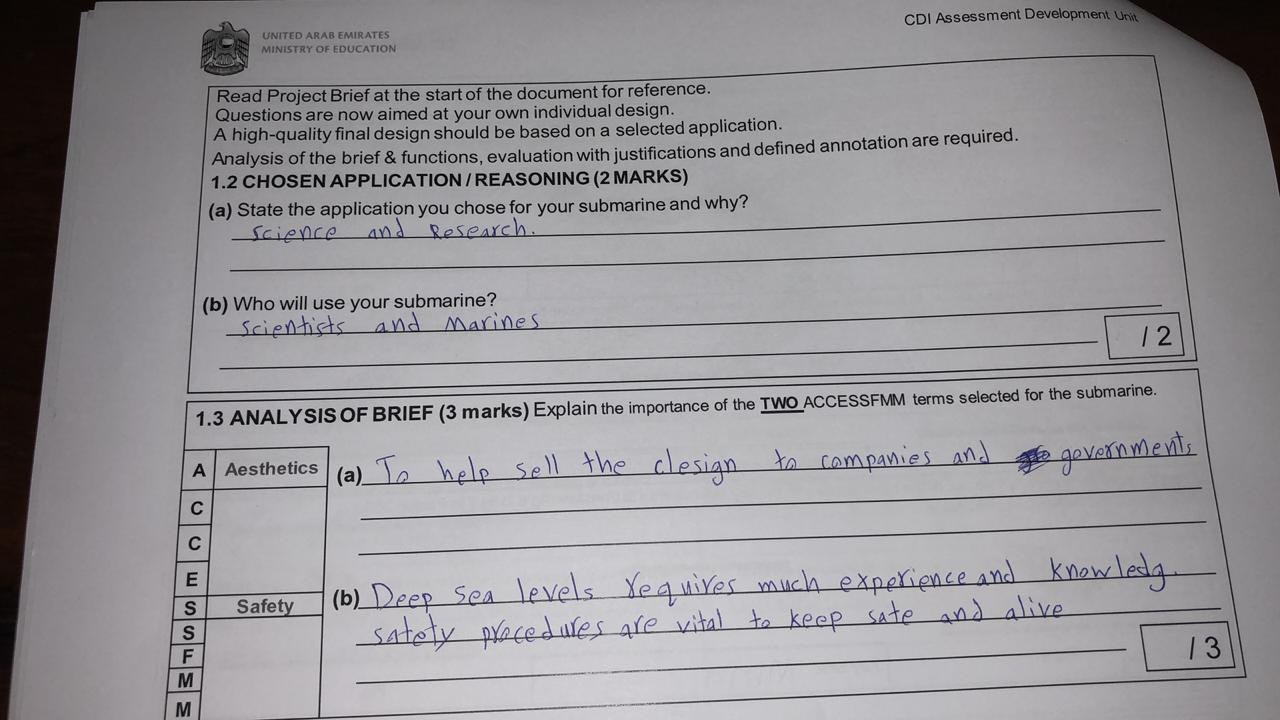 CDI Assessment Development Unit
UNITED ARAB EMIRATES
MINISTRY OF EDUCATION
Read Project Brief at the start of the document for reference.
Questions are now aimed at your own individual design.
A high-quality final design should be based on a selected application.
Analysis of the brief & functions, evaluation with justifications and defined annotation are required.
1.2 CHOSEN APPLICATION / REASONING (2 MARKS)
(a) State the application you chose for your submarine and why?
Science and Research.
(b) Who will use your submarine?
Scientists and Marines
/ 2
1.3 ANALYSIS OF BRIEF (3 marks) Explain the importance of the TWO ACCESSFMM terms selected for the submarine.
A Aesthetics
(a) To help sell the design to companies and governments
C
C
E
S Safety
(b) Deep sea levels requires much experience and knowledg.
safety procedures are vital to keep safe and alive
S
F
M
M
/ 3